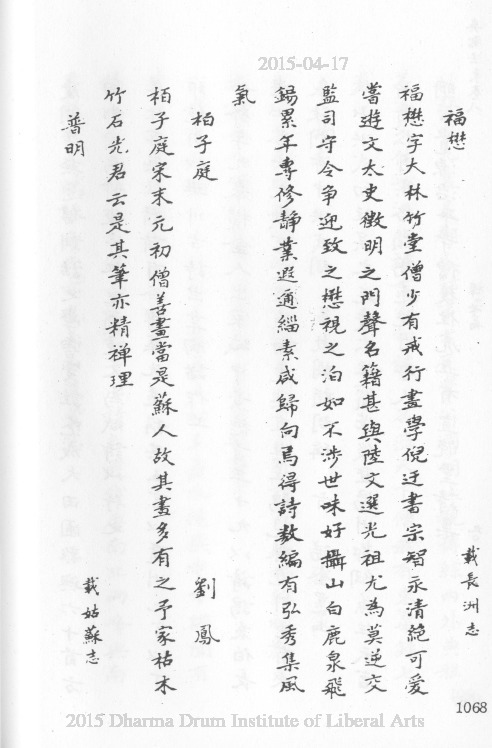 2015-04-17
福懋
載長洲志
福懋字大林竹堂僧少有戒行畫學倪迂書宗智永清絶可愛
嘗遊文太史徵明之門聲名籍甚與陸文選光祖尤為莫逆交
監司守令争迎致之懋視之泊如不涉世味好攝山白鹿泉飛
錫累年專修靜業遐邇緇素咸歸向焉得詩数編有弘秀集風
氣
柏子庭
劉鳳
栢子庭宋末元初僧善畫當是蘇人故其畫多有之予家枯木
竹石尤君云是其筆亦精禅理
載姑蘇志
普明
1068
2015 Dharma Drum Institute of Liberal Arts